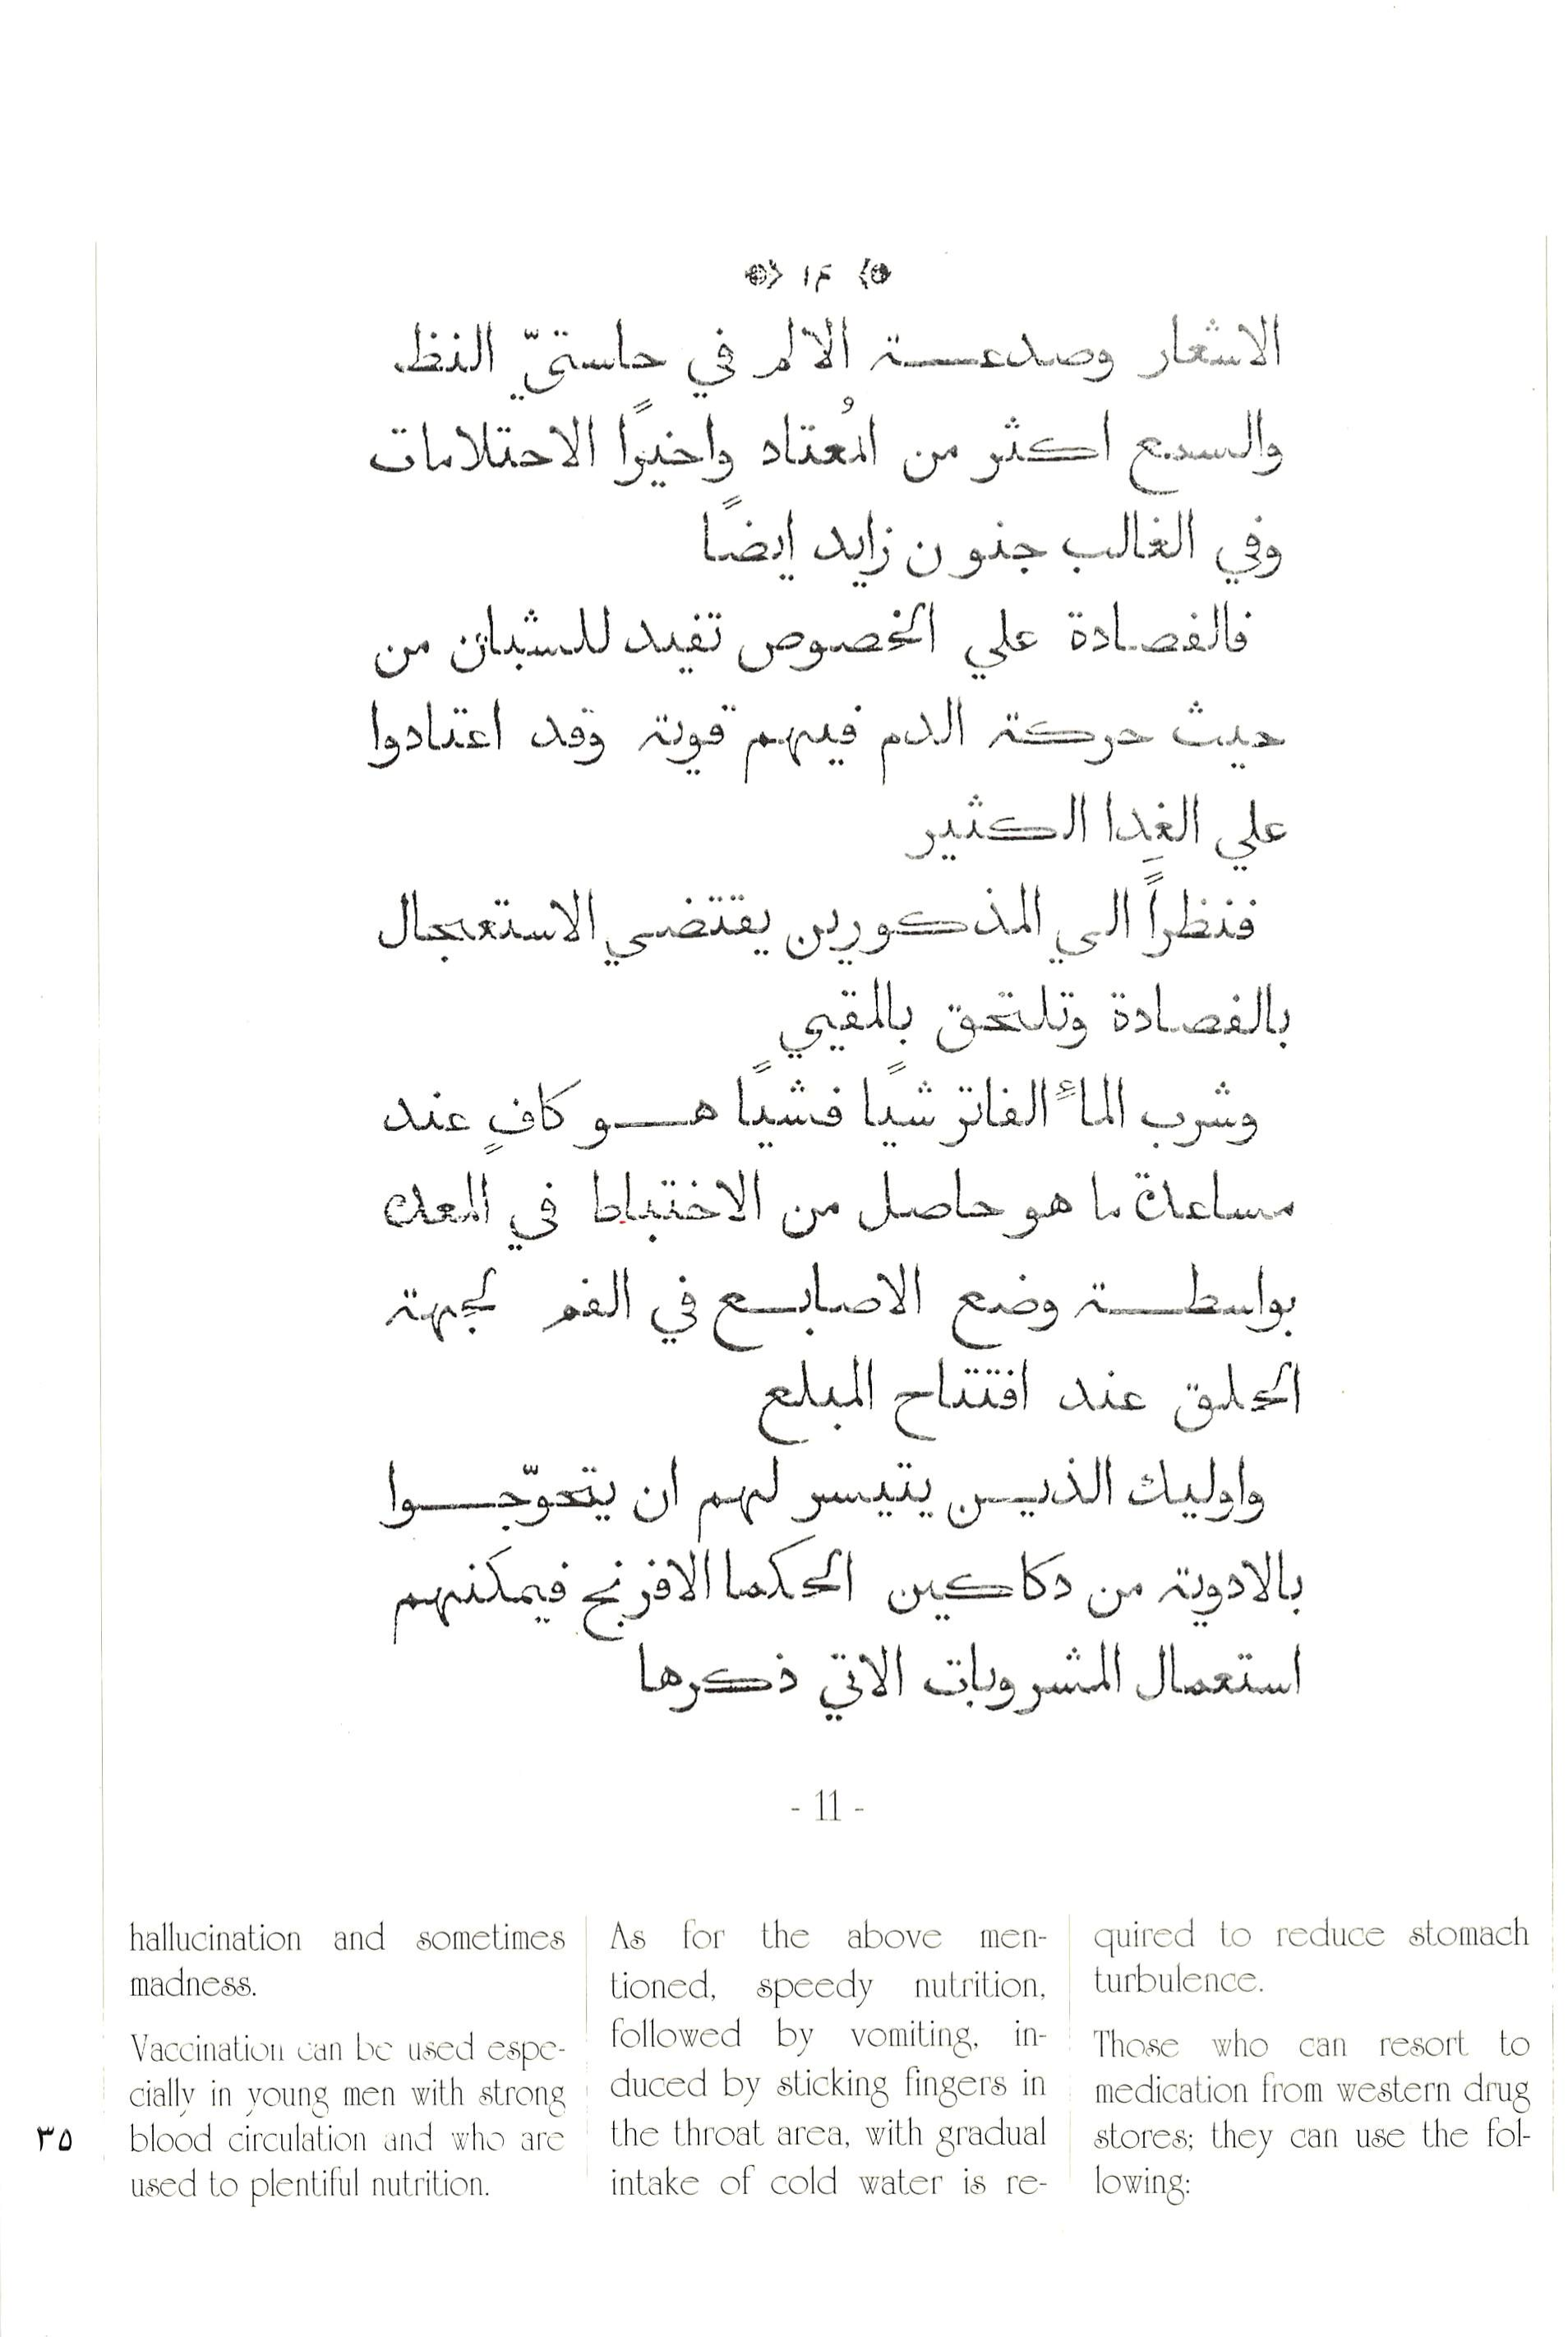 ١٤
الاشعار وصدعة الالم في حاستيّ النظر
والسمع اكثر من المُعتاد واخيرًا الاحتلامات
وفي الغالب جنون زايد ايضًا
فالفصادة علي الخصوص تفيد للشبان من
حيث حركة الدم فيهم قوية وقد اعتادوا
علي الغدا الكثير
فنظرًا الي المذكورين يقتضي الاستعجال
بالفصادة وتلتحق بالمقيي
وشرب الماء الفاتر شيًا فشيًا هو كافٍ عند
مساعدة ما هو حاصل من الاختباط في المعدة
بواسطة وضع الاصابع في الفم لجهة
الحلق عند افتتاح المبلع
واوليك الذين يتيسر لهم ان يتحوّجوا
بالادوية من دكاكين الحكما الافرنج فيمكنهم
استعمال المشروبات الاتي ذكرها
- 11 -
hallucination and sometimes
madness.
Vaccination can be used espe-
cially in young men with strong
blood circulation and who are
used to plentiful nutrition.
As for the above men-
tioned, speedy nutrition,
followed by vomiting, in-
duced by sticking fingers in
the throat area, with gradual
intake of cold water is re-
quired to reduce stomach
turbulence.
Those who can resort to
medication from western drug
stores; they can use the fol-
lowing:
٣٥